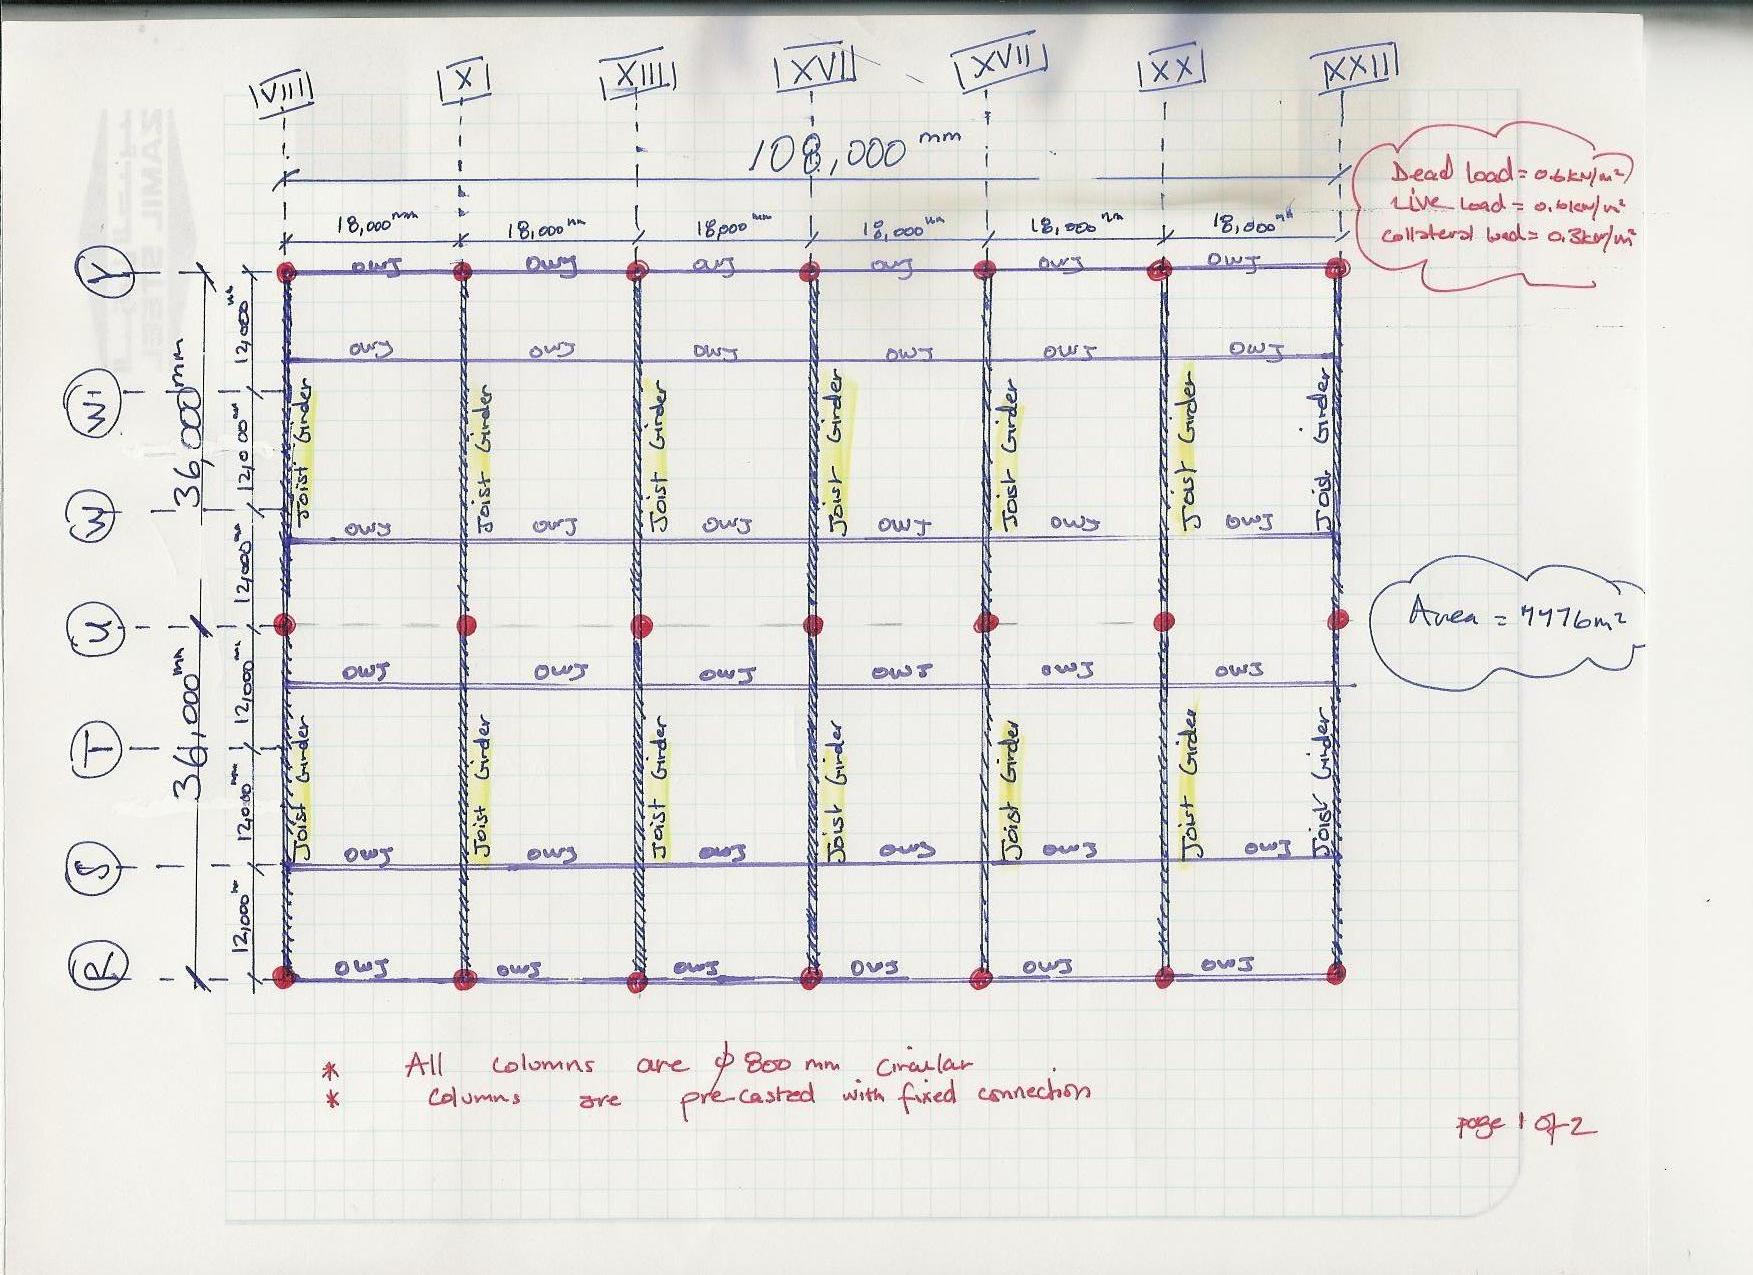 VIII X XIII XVI XVII XX XXII
108,000 mm
Dead Load = 0.6kN/m²
Live Load = 0.6kN/m²
Collateral Load = 0.3kN/m²
18,000mm 18,000mm 18,000mm 18,000mm 18,000mm 18,000mm
Y
OWJ OWJ OWJ OWJ OWJ OWJ
12,000mm
36,000mm
OWJ OWJ OWJ OWJ OWJ OWJ
W1
12,000mm
Joist Girder Joist Girder Joist Girder Joist Girder Joist Girder Joist Girder Joist Girder
W
OWJ OWJ OWJ OWJ OWJ OWJ
12,000mm
U
Area = 7776m²
12,000mm
OWJ OWJ OWJ OWJ OWJ OWJ
36,000mm
T
Joist Girder Joist Girder Joist Girder Joist Girder Joist Girder Joist Girder Joist Girder
12,000mm
OWJ OWJ OWJ OWJ OWJ OWJ
S
12,000mm
R
OWJ OWJ OWJ OWJ OWJ OWJ
* All columns are ϕ 800 mm circular
* Columns are pre-casted with fixed connection
page 1 of 2
ZAMIL STEEL